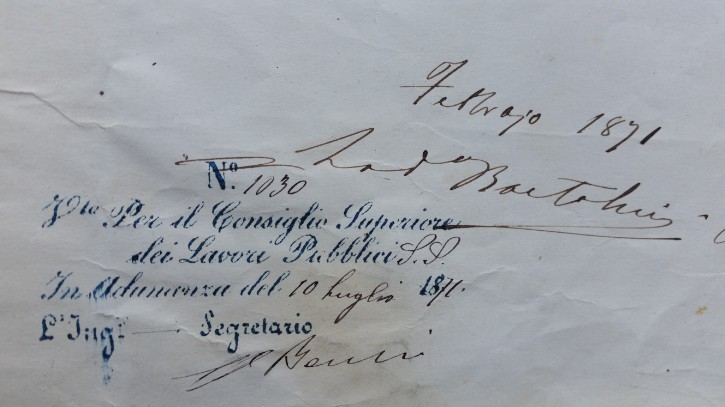 Febbrajo 1871
Nº. 1030
Vto Per il Consiglio Superiore
dei Lavori Pubblici S.S.
In Adunanza del 10 luglio 1871.
L'Ingre Segretario